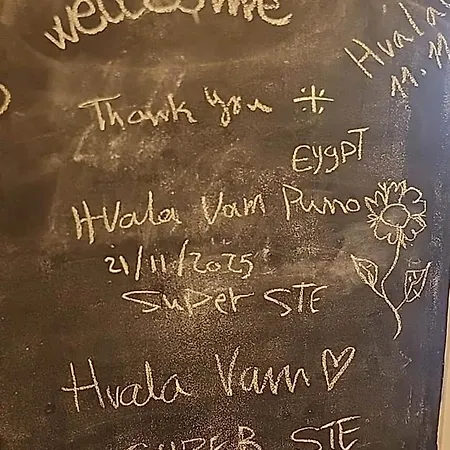 wellcome
Hvala
11.11
Thank you
EYGPT
HVala Vam Puno
21/11/2025
SuPer STE
Hvala Vam
SUPER STE